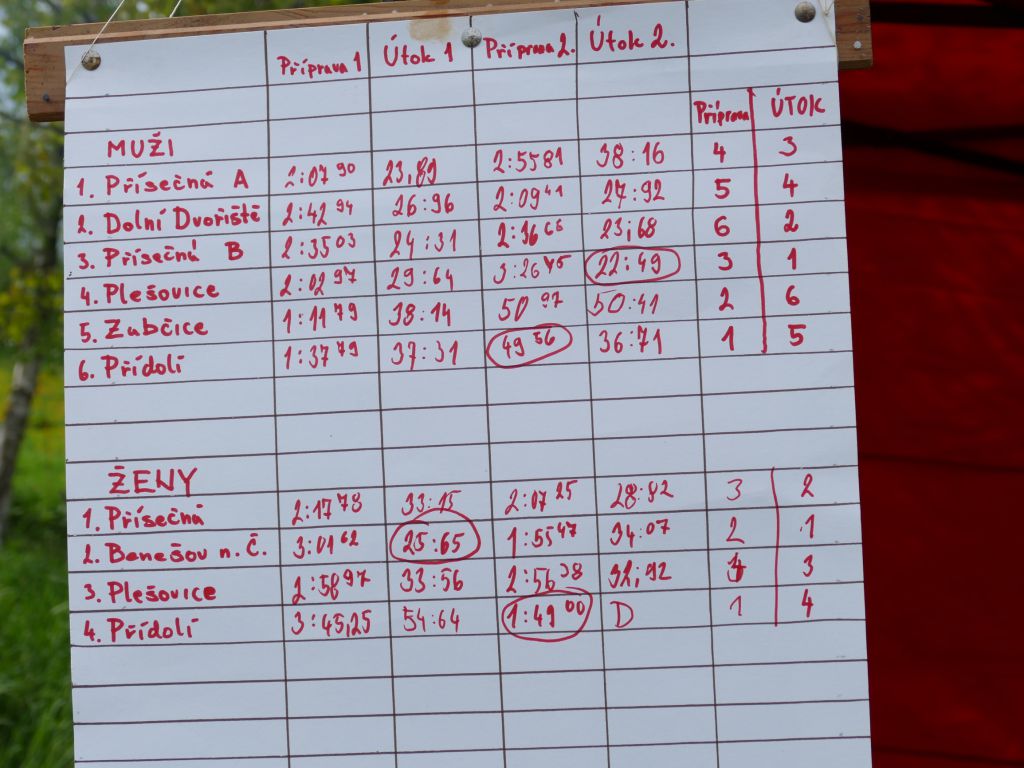 Příprava 1 Útok 1 Příprava 2. Útok 2.
Příprava ÚTOK
MUŽI
1. Přísečná A 2:07 90 23,89 2:5581 38:16 4 3
2. Dolní Dvořiště 2:42 94 26:96 2:09 41 27:92 5 4
3. Přísečná B 2:35 03 24:31 2:36 66 23,68 6 2
4. Plešovice 2:02 97 29:64 3:26 45 22:49 3 1
5. Zubčice 1:11 79 38:14 50 97 50:41 2 6
6. Přídolí 1:37 79 37:31 49 56 36:71 1 5
ŽENY
1. Přísečná 2:17 78 33:15 2:07 25 28:82 3 2
2. Benešov n.Č. 3:01 62 25:65 1:55 47 34:07 2 1
3. Plešovice 2:58 97 33:56 2:56 38 32,92 4 3
4. Přídolí 3:45,25 54:64 1:49 00 D 1 4